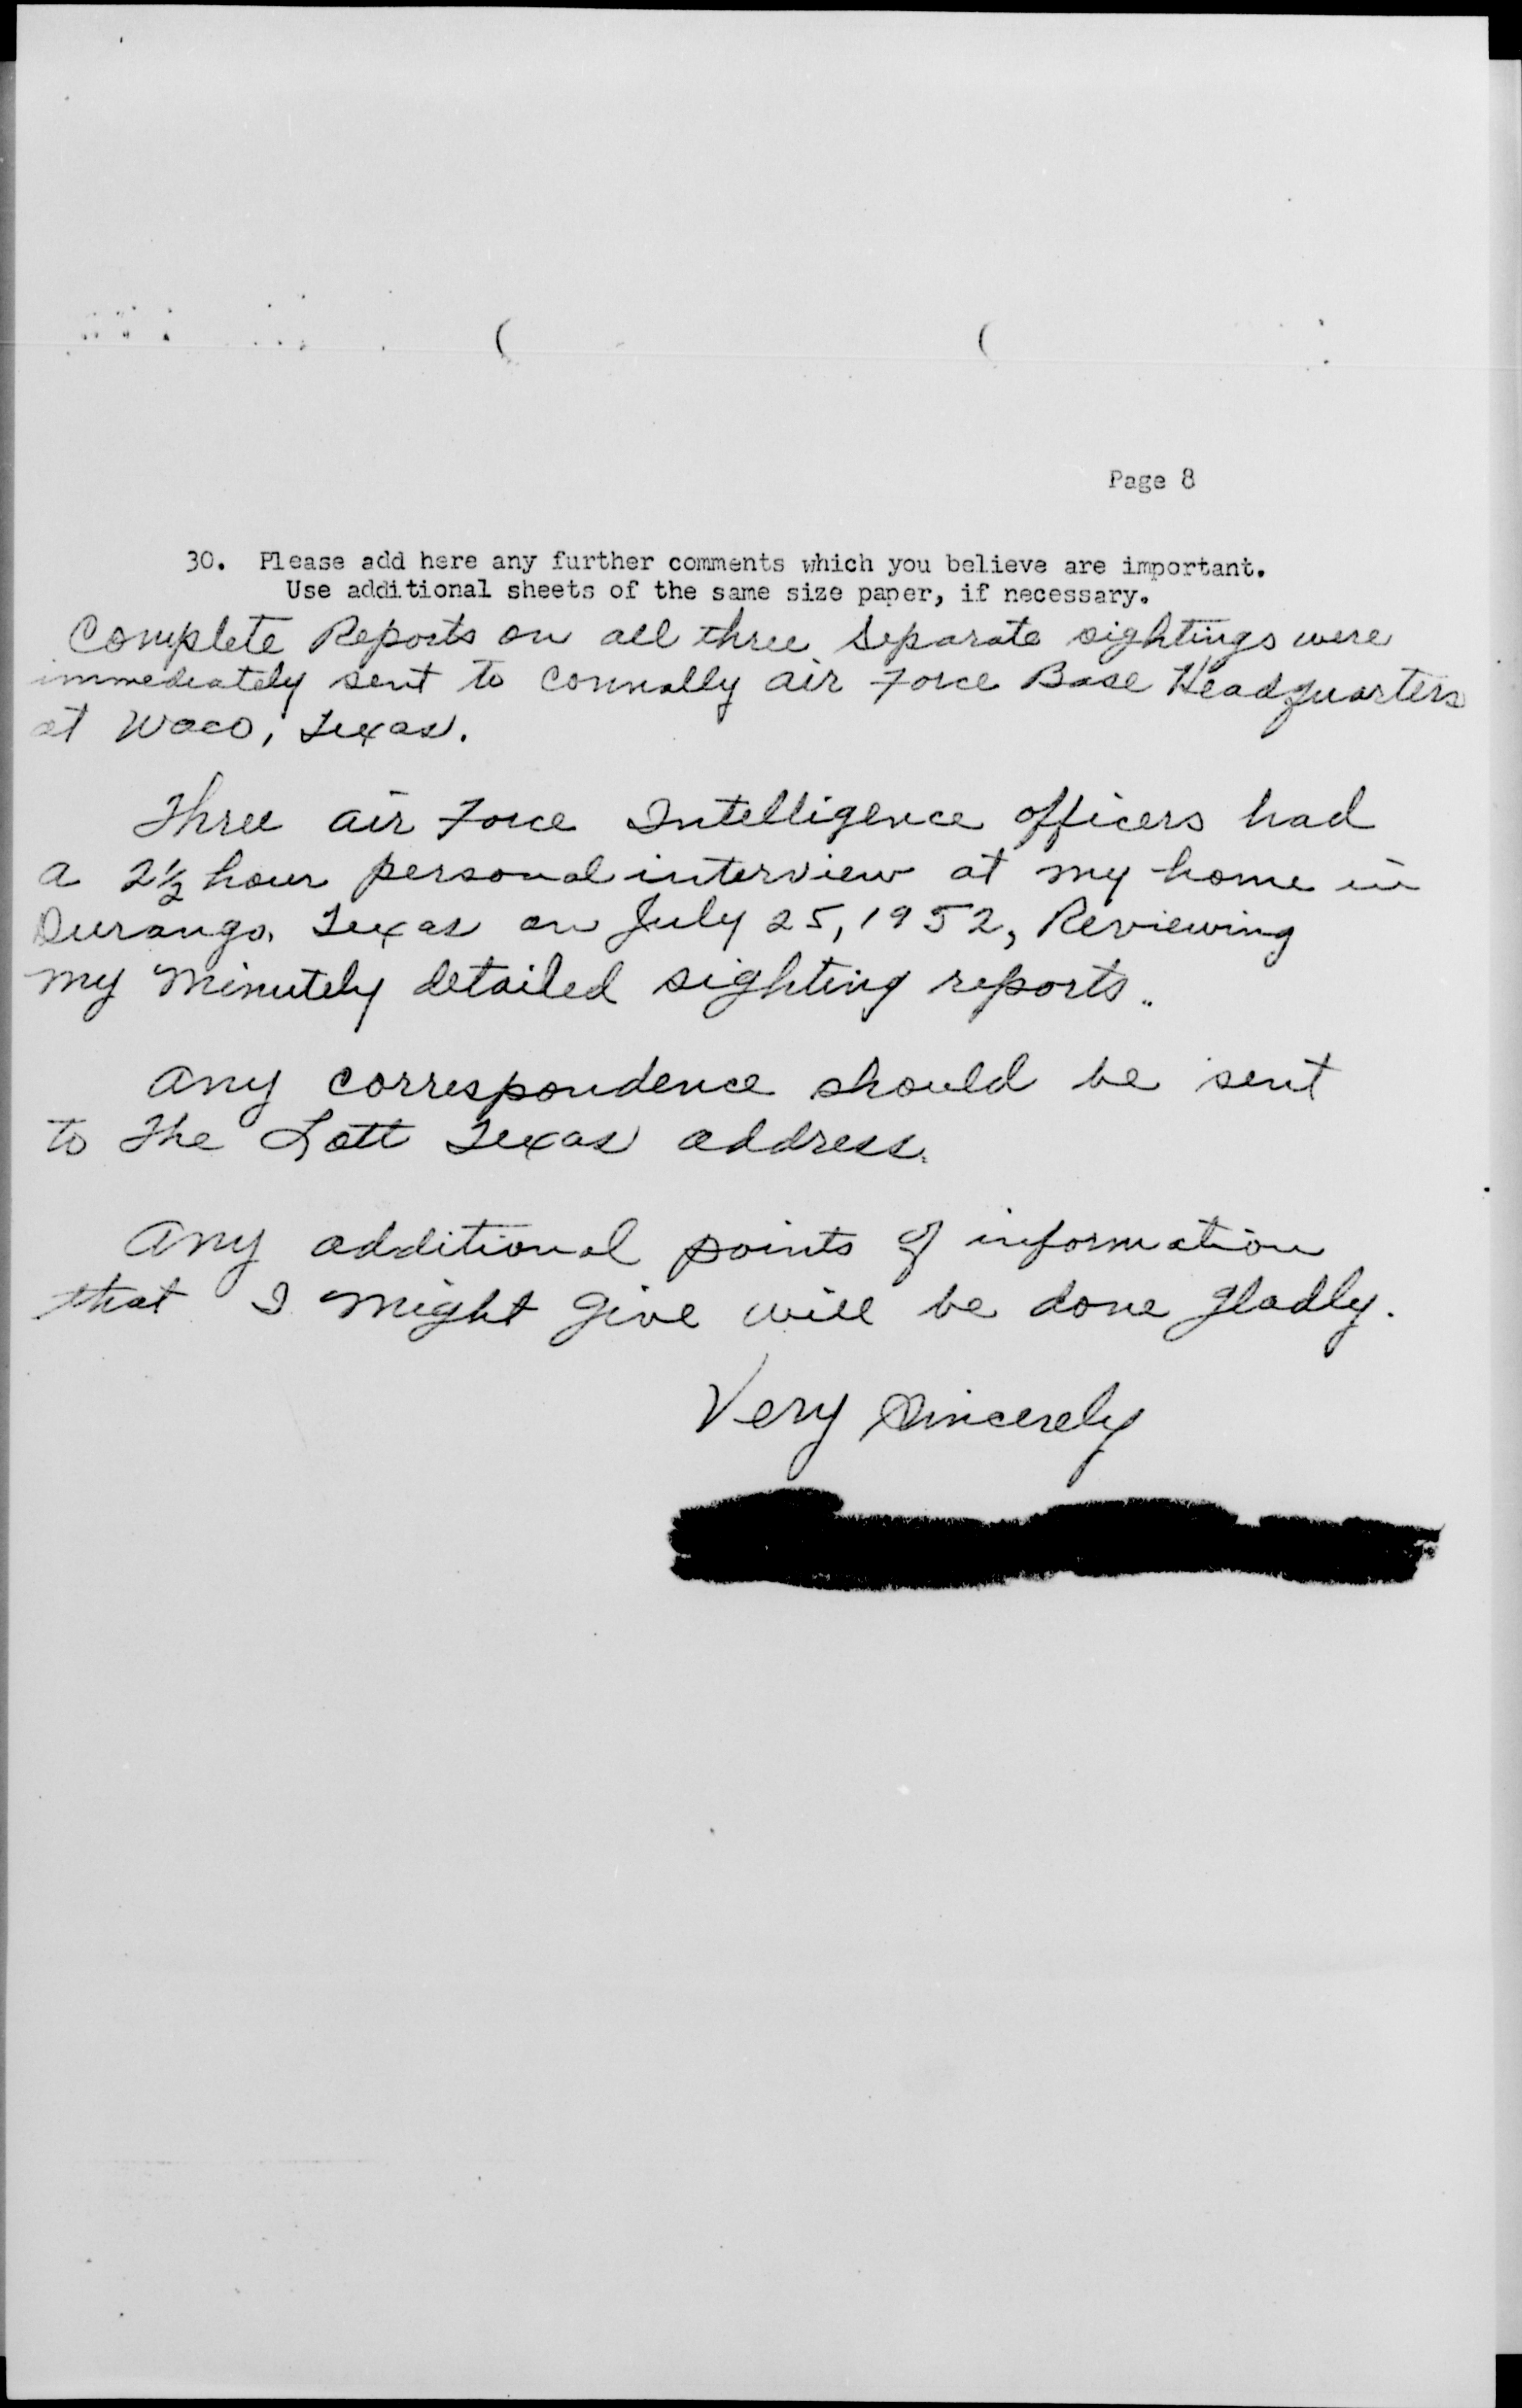 Page 8
30. Please add here any further comments which you believe are important.
Use additional sheets of the same size paper, if necessary.
Complete Reports on all three separate sightings were
immediately sent to Connally Air Force Base Headquarters
at Waco, Texas.
Three Air Force Intelligence officers had
a 2½ hour personal interview at my home in
Durango, Texas on July 25, 1952, Reviewing
my minutely detailed sighting reports.
Any correspondence should be sent
to the Lott Texas address.
Any additional points of information
that I might give will be done gladly.
Very Sincerely